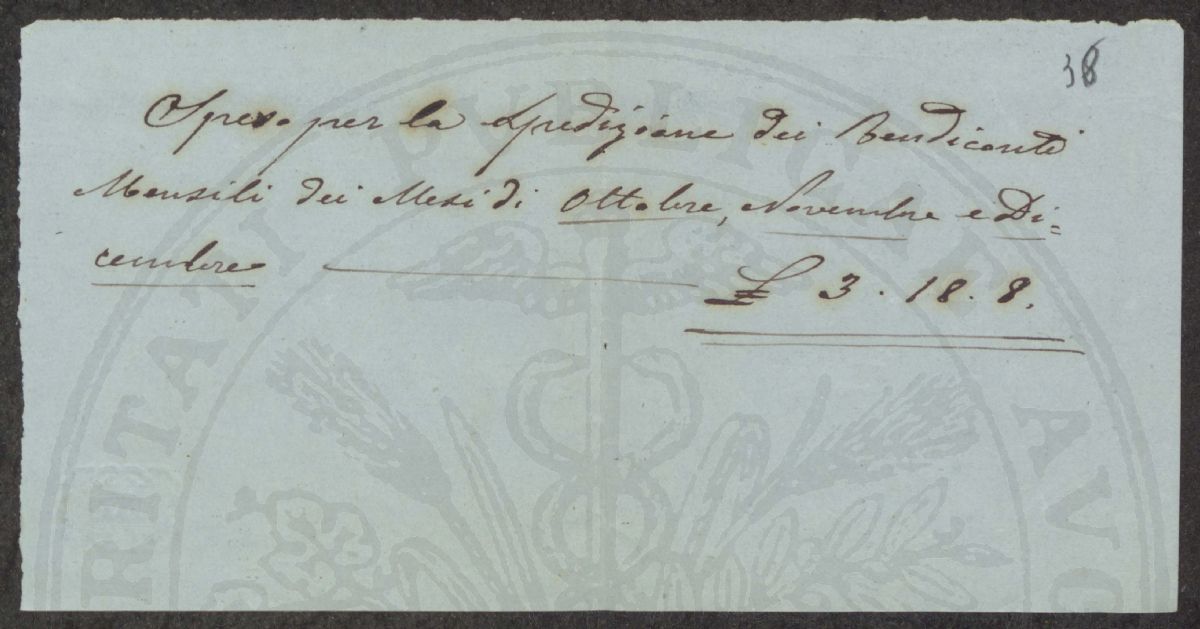 38
Spese per la Spedizione dei Rendiconti
Mensili dei Mesi di Ottobre, Novembre e Di=
cembre £ 3.18.8.
PROSPERITATI PVBLICAE AVG